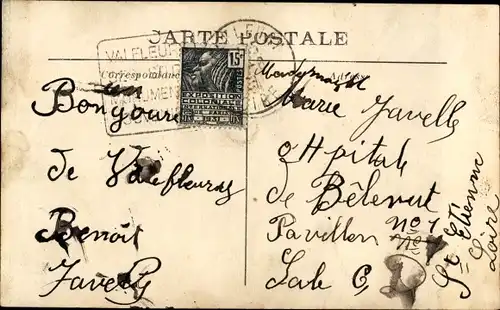 CARTE POSTALE
Correspondance
VALFLEUR
15c
POSTES
EXPOSITION
COLONIALE
INTERNATIONALE
PARIS 1931
LOIRE
un
Bongoure
de Valfleuray
Benoit
Javelle
Mademoiselle
Marie Javelle
a Hpital
de Bèlevut
Pavillon no 1
Sale C
St Etienne
Loire